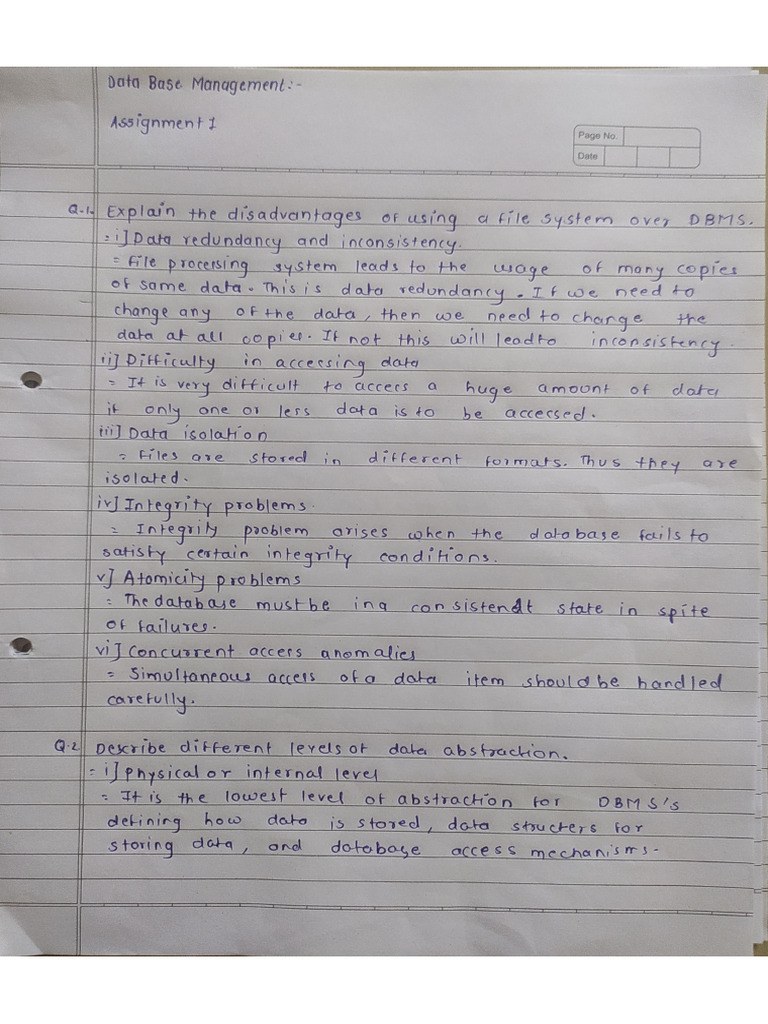 Data Base Management:-
Assignment 1
Page No.
Date
Q.1. Explain the disadvantages of using a file system over DBMS.
= i] Data redundancy and inconsistency.
= File processing system leads to the usage of many copies
of same data. This is data redundancy. If we need to
change any of the data, then we need to change the
data at all copies. If not this will lead to inconsistency.
ii] Difficulty in accessing data
= It is very difficult to access a huge amount of data
if only one or less data is to be accessed.
iii] Data isolation
= Files are stored in different formats. Thus they are
isolated.
iv] Integrity problems.
= Integrity problem arises when the database fails to
satisfy certain integrity conditions.
v] Atomicity problems
= The database must be in a consistent state in spite
of failures.
vi] Concurrent access anomalies
= Simultaneous access of a data item should be handled
carefully.
Q.2 Describe different levels of data abstraction.
= i] Physical or internal level
= It is the lowest level of abstraction for DBMS's
defining how data is stored, data structers for
storing data, and database access mechanisms.